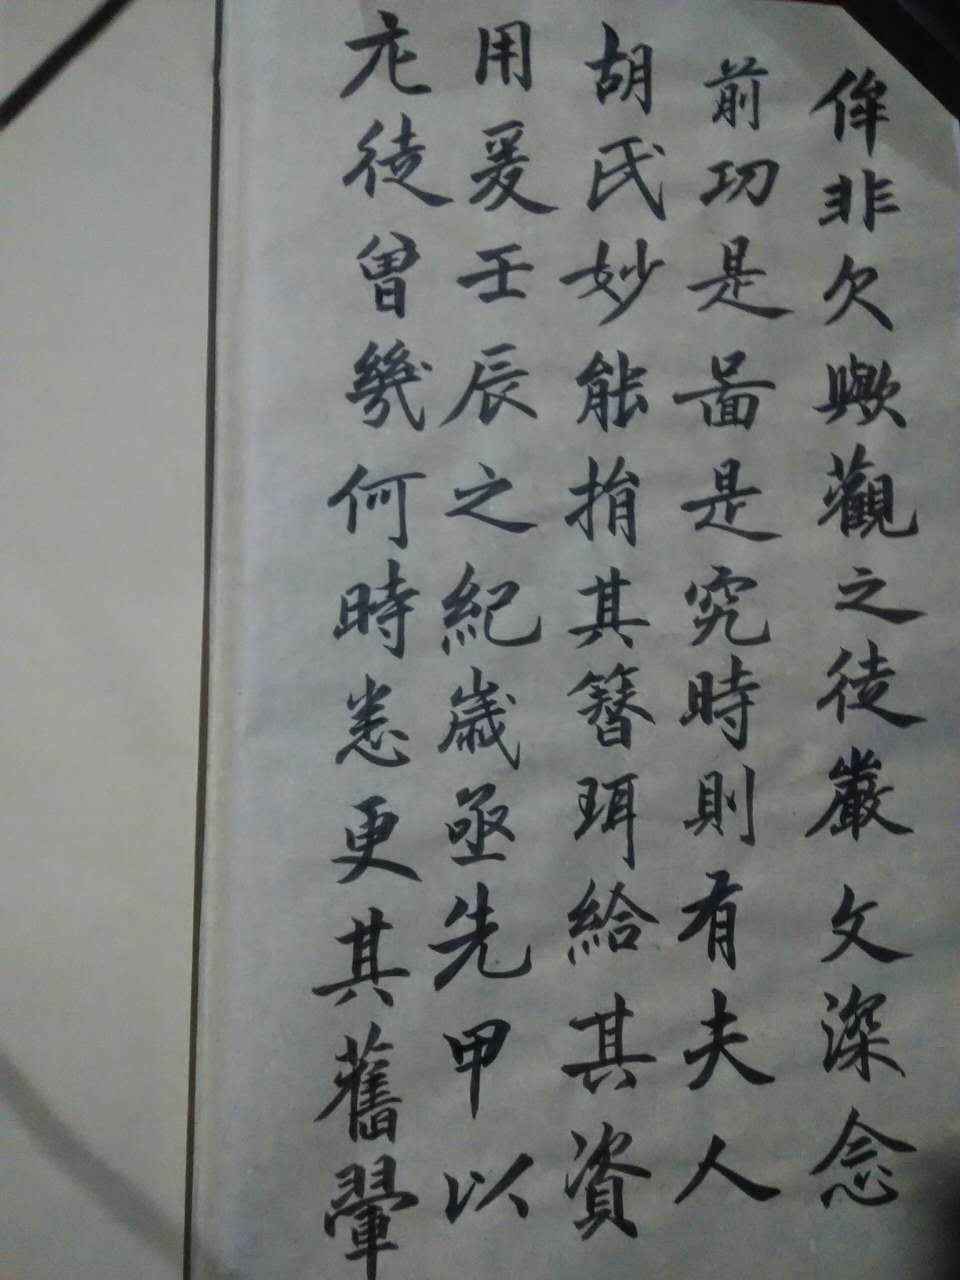 侔非欠歟觀之徒嚴文深念
前功是啚是究時則有夫人
胡氏妙能捐其簪珥給其資
用爰壬辰之紀歲亟先甲以
庀徒曾幾何時悉更其舊翬